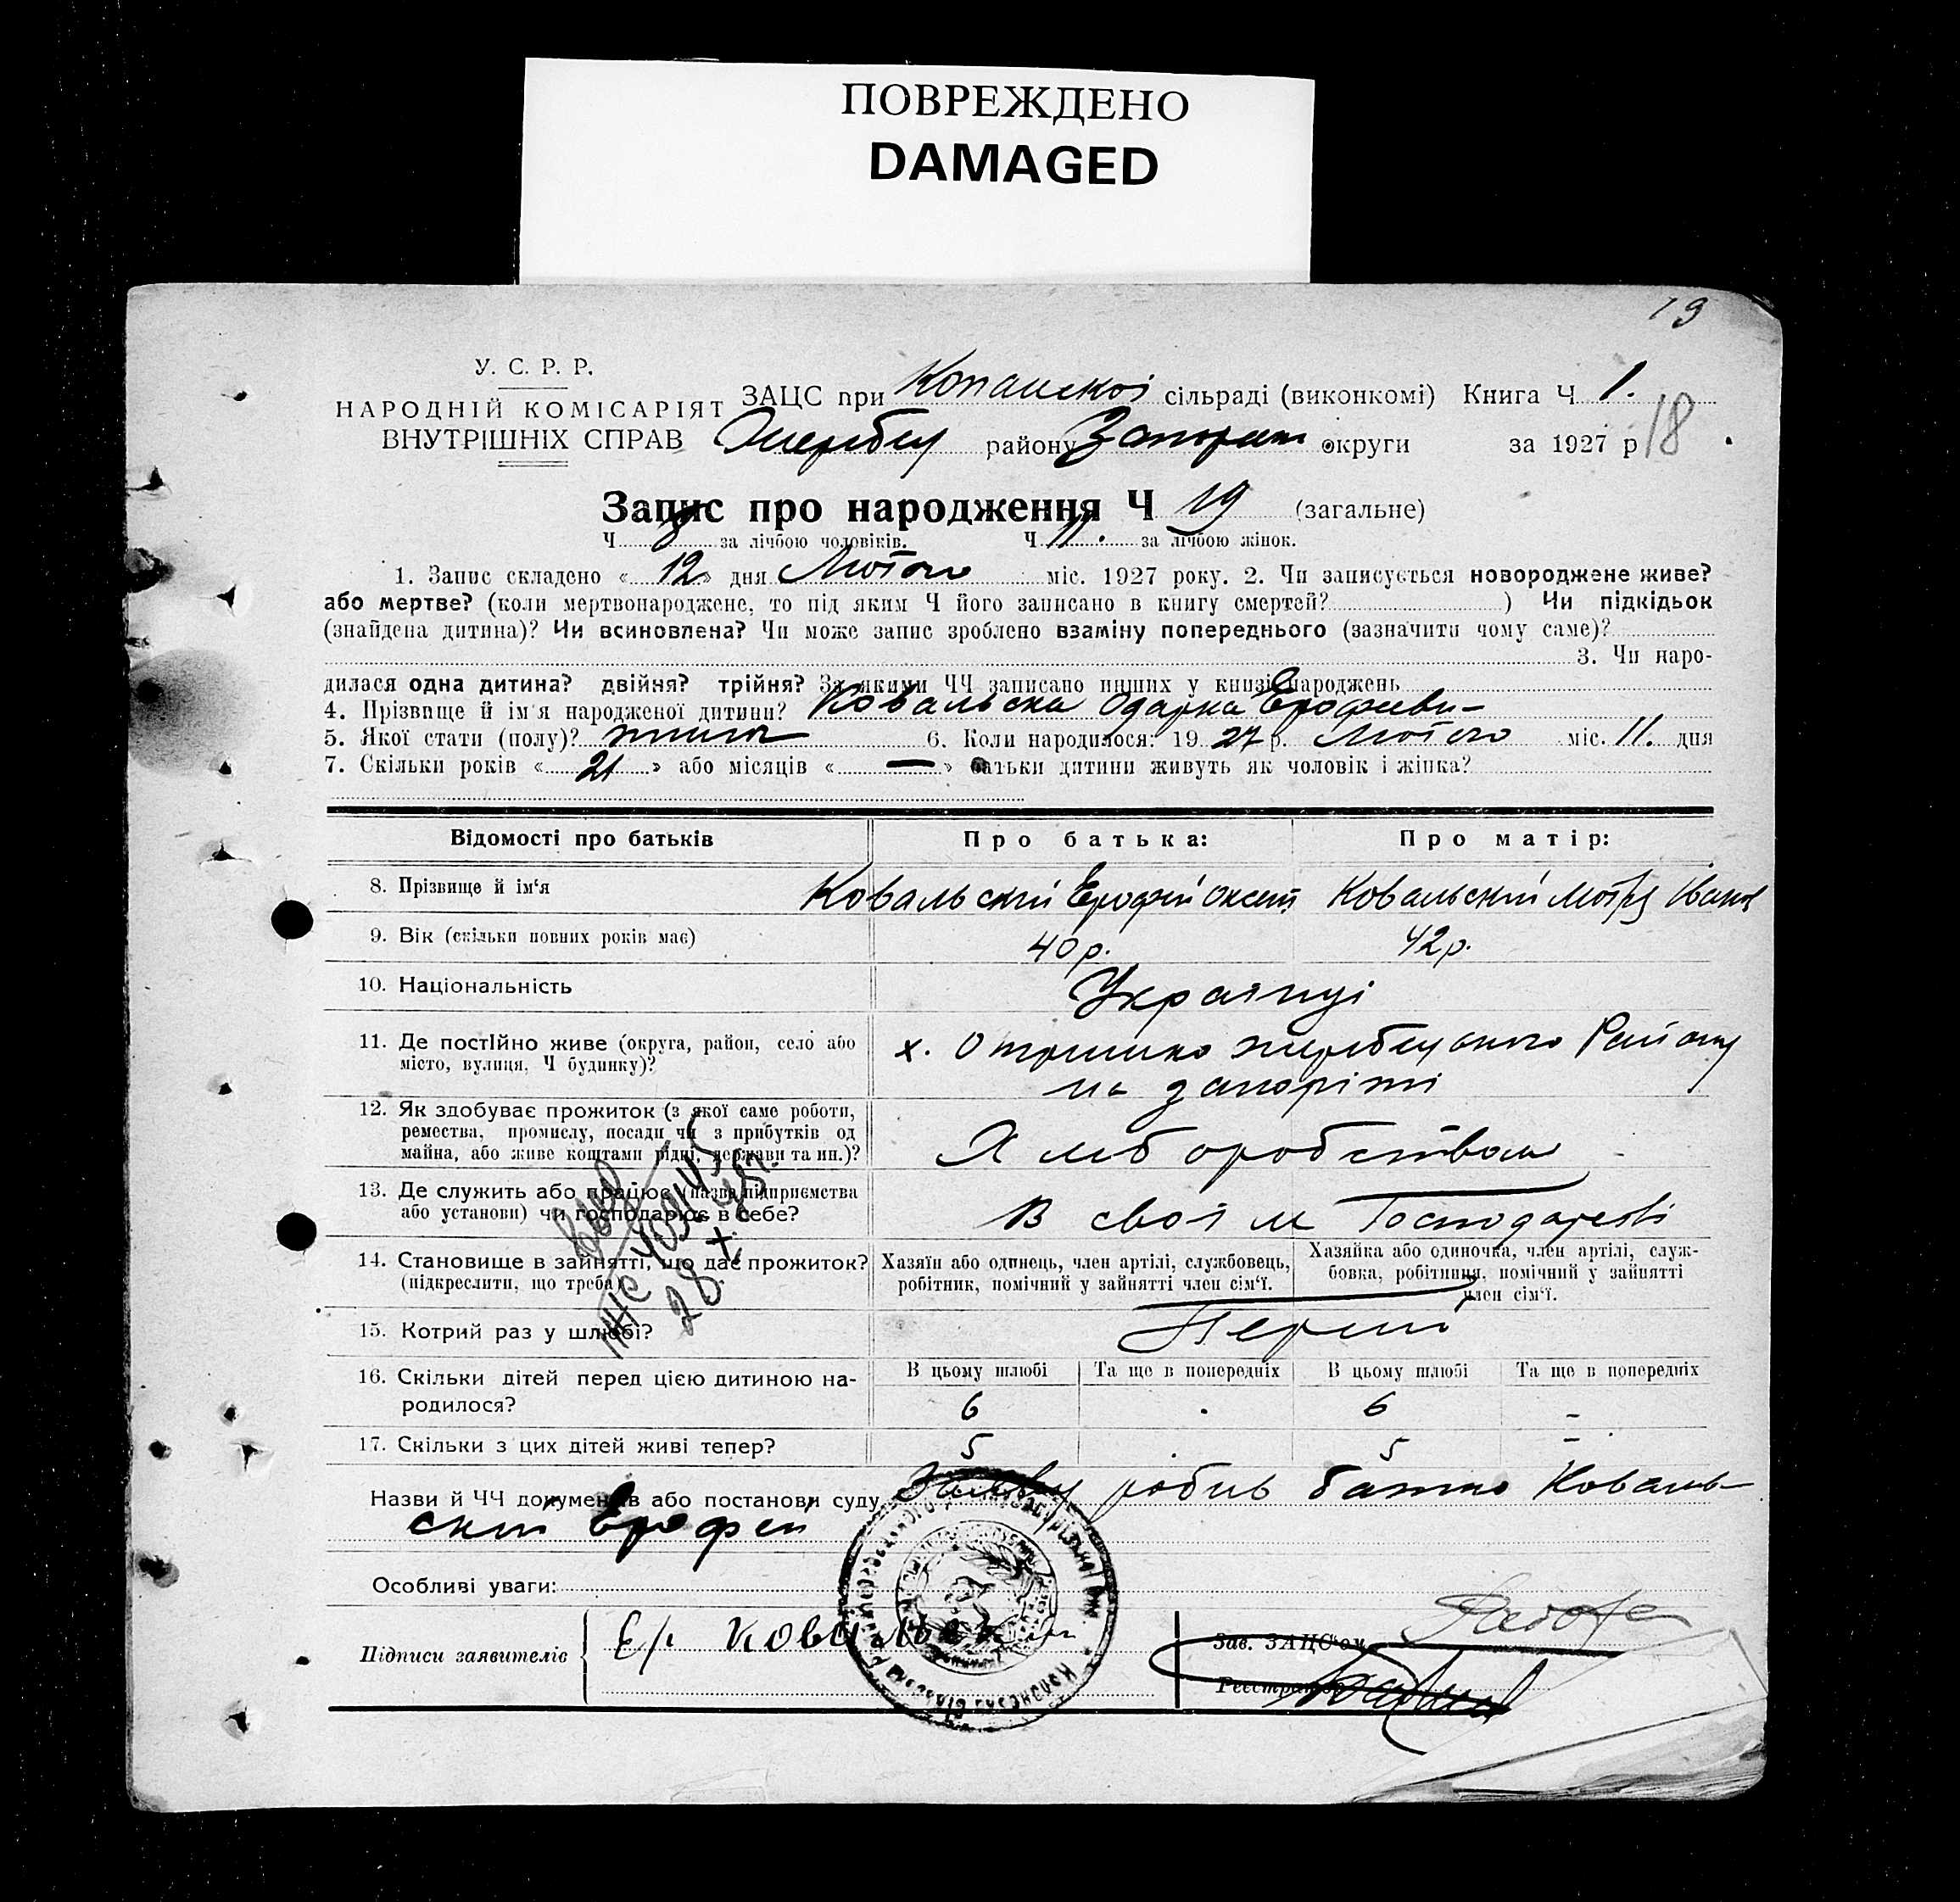 ПОВРЕЖДЕНО
DAMAGED
19
У. С. Р. Р.
НАРОДНІЙ КОМІСАРІЯТ
ВНУТРІШНІХ СПРАВ
ЗАЦС при Копанської сільраді (виконкомі) Книга Ч 1.
району Запоріж округи за 1927 р 18
Запис про народження Ч 19 (загальне)
Ч 8 за лічбою чоловіків. Ч 11. за лічбою жінок.
1. Запис складено « 12 » дня Лютого міс. 1927 року. 2. Чи записується новороджене живе?
або мертве? (коли мертвонароджене, то під яким Ч його записано в книгу смертей? ) Чи підкідьок
(знайдена дитина)? Чи всиновлена? Чи може запис зроблено взаміну попереднього (зазначити чому саме)?
3. Чи наро-
дилася одна дитина? двійня? трійня? За якими ЧЧ записано инших у книзі народжень
4. Прізвище й ім'я народженої дитини? Ковальска Одарка Ерофиеви-
5. Якої стати (полу)? 6. Коли народилося: 19 27 р. Лютого міс. 11. дня
7. Скільки років « 21 » або місяців « — » батьки дитини живуть як чоловік і жінка?
Відомості про батьків Про батька: Про матір:
8. Прізвище й ім'я Ковальский Ерофій Ковальский Мотря Іванов
9. Вік (скільки повних років має) 40 р. 42 р.
10. Національність Українці
11. Де постійно живе (округа, район, село або
місто, вулиця, Ч будинку)?
х. Жеребецького Району
на запоріжі
12. Як здобуває прожиток (з якої саме роботи,
ремества, промислу, посади чи з прибутків од
майна, або живе коштами рідні, держави та ин.)?
Хлеборобством
13. Де служить або працює (назва підприємства
або установи) чи господарює в себе?
В своїм Господарстві
14. Становище в зайнятті, що дає прожиток?
(підкреслити, що треба)
Хазяїн або одинець, член артілі, службовець,
робітник, помічний у зайнятті член сім'ї.
Хазяйка або одиночка, член артілі, служ-
бовка, робітниця, помічний у зайнятті
член сім'ї.
15. Котрий раз у шлюбі? Перший
16. Скільки дітей перед цією дитиною на-
родилося?
В цьому шлюбі Та ще в попередніх В цьому шлюбі Та ще в попередніх
6 . 6 –
17. Скільки з цих дітей живі тепер? 5 . 5 –
Назви й ЧЧ документів або постанови суду Заяву робив батько Коваль-
ский Ерофей
Особливі уваги:
Підписи заявителів Ер Ковальский
Зав. ЗАЦС'ом
Реєстратор